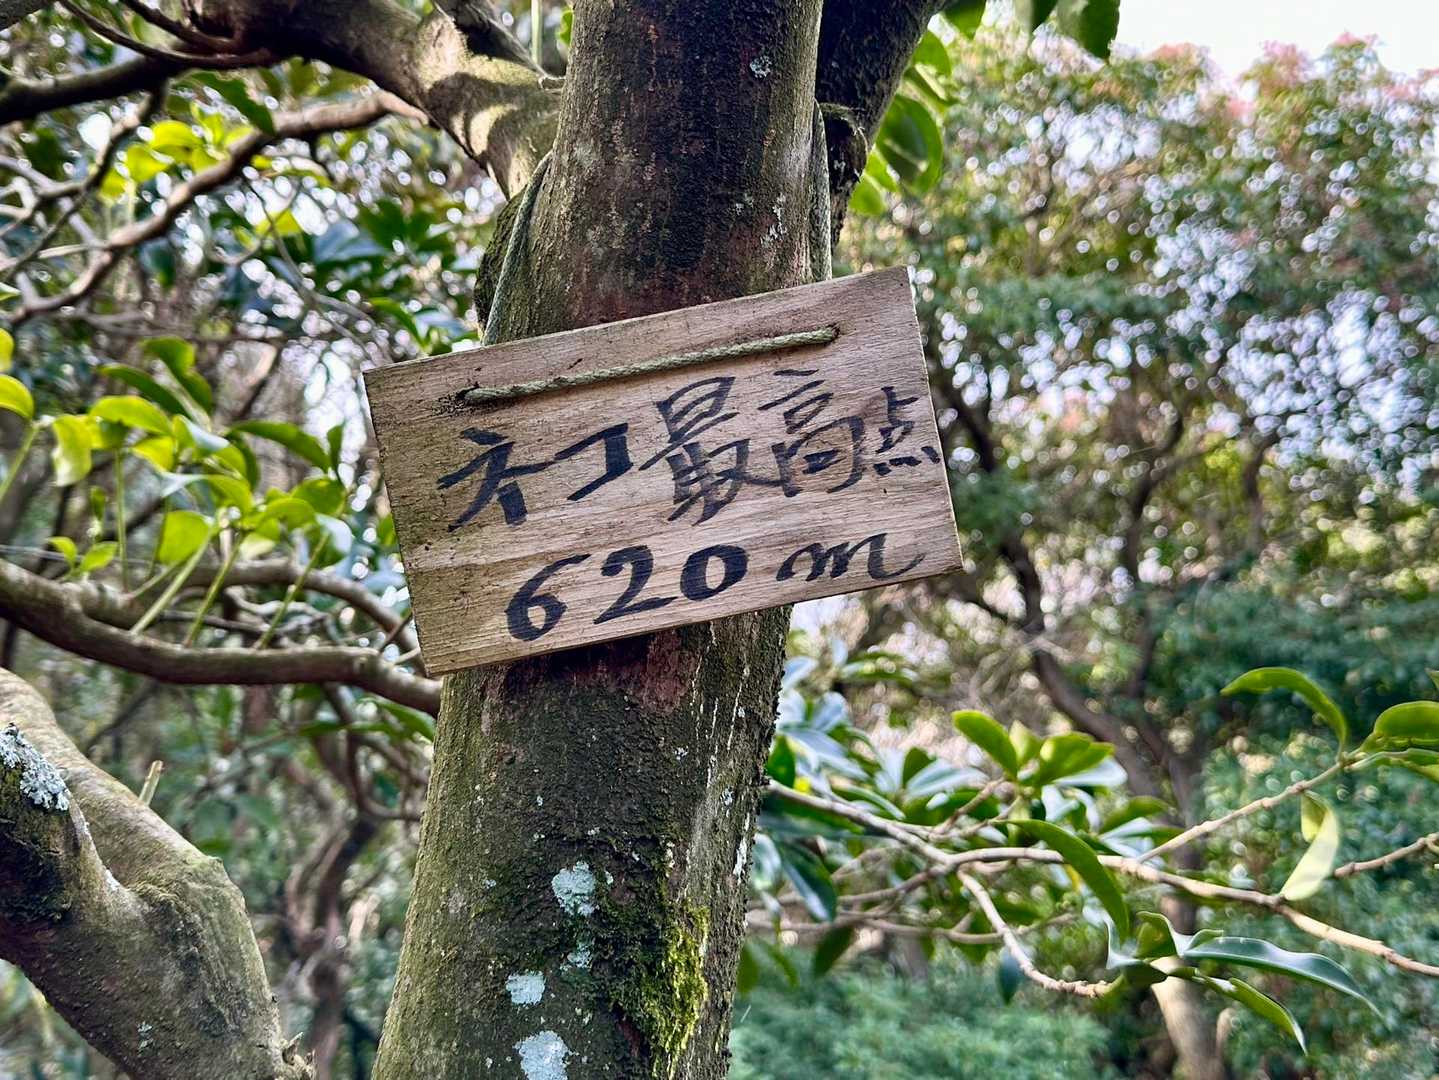 ネコ最高点
620m